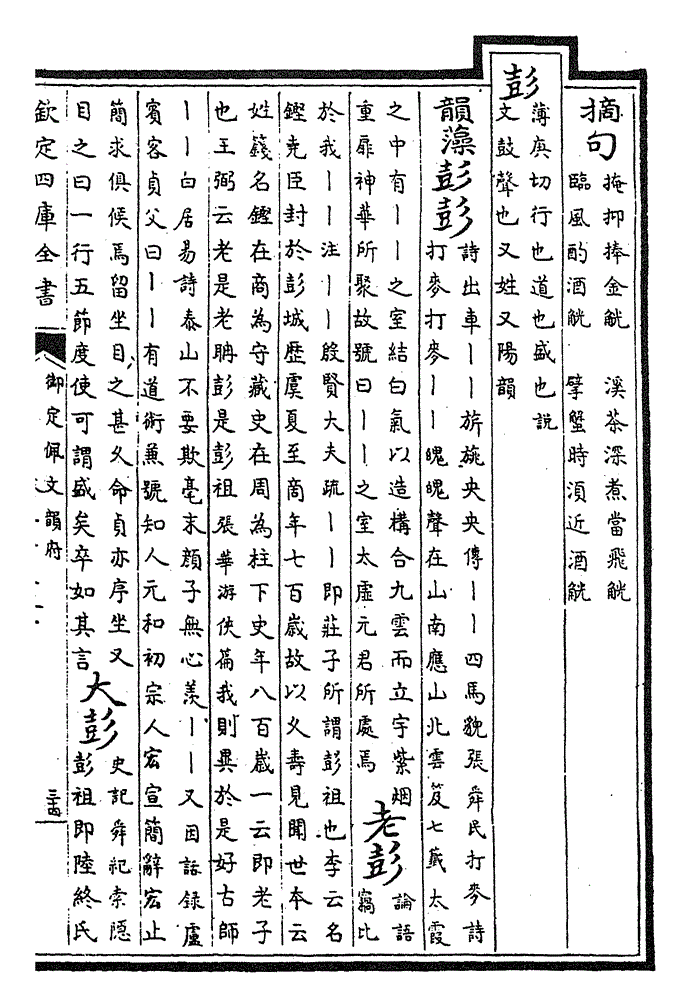 摘句 掩抑捧金觥　溪茶深煮當飛觥
臨風酌酒觥　擘蟹時湏近酒觥
彭 薄庚切行也道也盛也説
文鼓聲也又姓又陽韻
韻藻彭彭 詩出車丨丨旂旐央央傳丨丨四馬貌張舜民打麥詩
打麥打麥丨丨魄魄聲在山南應山北雲笈七籖太霞
之中有丨丨之室結白氣以造構合九雲而立宇紫烟
重扉神華所聚故號曰丨丨之室太虛元君所處焉
老彭 論語
竊比
於我丨丨注丨丨殷賢大夫疏丨丨即莊子所謂彭祖也李云名
鏗堯臣封於彭城歴虞夏至商年七百歳故以乆壽見聞世本云
姓籛名鏗在商為守藏史在周為柱下史年八百歳一云即老子
也王弼云老是老聃彭是彭祖張華游俠篇我則異於是好古師
丨丨白居易詩泰山不要欺毫末顔子無心羨丨丨又因話録盧
賓客貞父曰丨丨有道術兼號知人元和初宗人宏宣簡辭宏止
簡求俱候焉留坐目之甚乆命貞亦序坐又
目之曰一行五節度使可謂盛矣卒如其言
大彭 史記舜祀索隠
彭祖即陸終氏
欽定四庫全書
御定佩文韻府